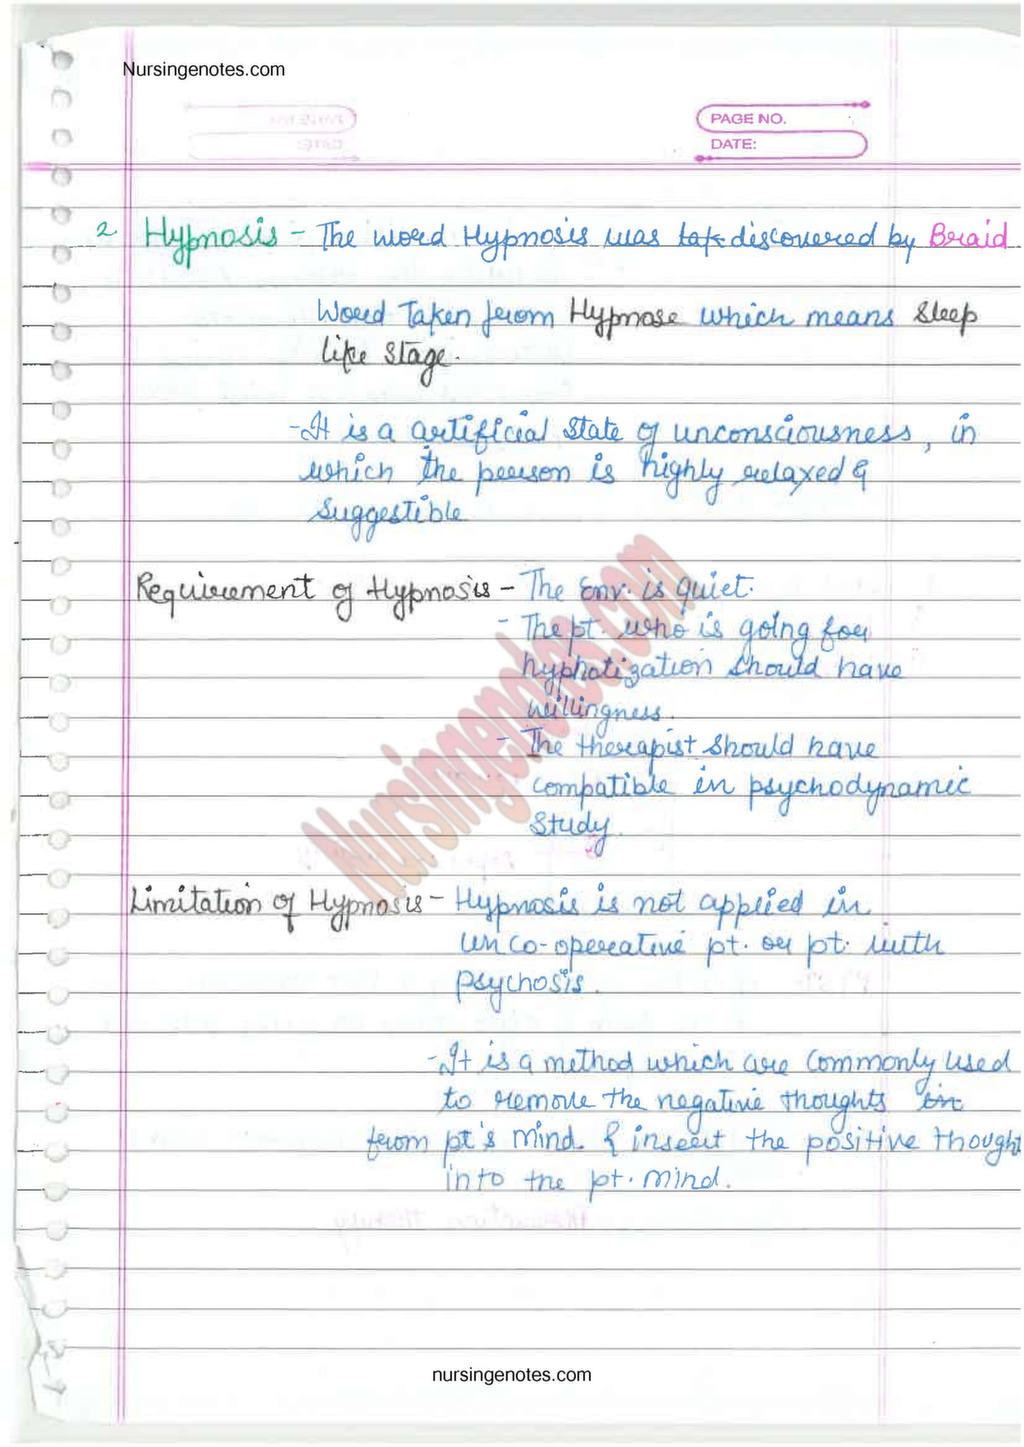 Nursingenotes.com
PAGE NO.
DATE:
2. Hypnosis - The word Hypnosis was discovered by Braid
Word Taken from Hypnose which means Sleep
like stage.
- It is a artificial State of unconsciousness, in
which the person is highly relaxed &
suggestible
Requirement of Hypnosis - The Env. is quiet.
- The pt. who is going for
hyphotization should have
willingness.
- The therapist should have
compatible in psychodynamic
Study.
Limitation of Hypnosis - Hypnosis is not applied in
un co-operative pt. or pt. with
psychosis.
- It is a method which are commonly used
to remove the negative thoughts in
from pt's mind. & insert the positive thought
into the pt. mind.
Nursingenotes.com
nursingenotes.com